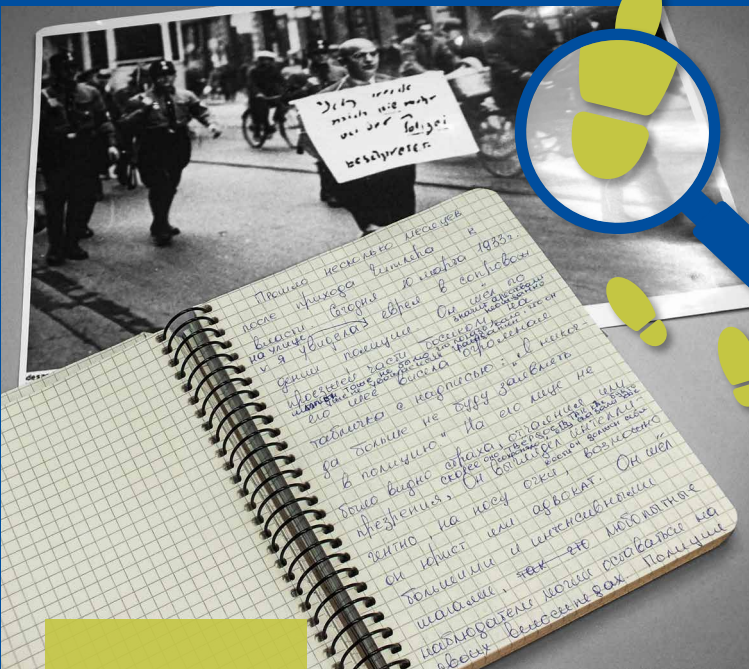 Ich werde
mich nie mehr
bei der Polizei
beschweren
Прошло несколько месяцев
после прихода Гитлера к
власти. Сегодня 10 марта 1933г.
на улице
я увидела еврея в сопровож
дении полиции. Он шёл по
проезжей части босиком, на
его шее висела огромная
табличка с надписью: "Я никог
да больше не буду заявлять
в полицию" На его лице не
было видно страха, отчаяния или
презрения. Он выглядел интелли-
гентно, на носу очки, возможно
он юрист или адвокат. Он шёл
большими и интенсивными
шагами, любопытные
наблюдатели могли оставаться на
своих велосипедах. Полиция